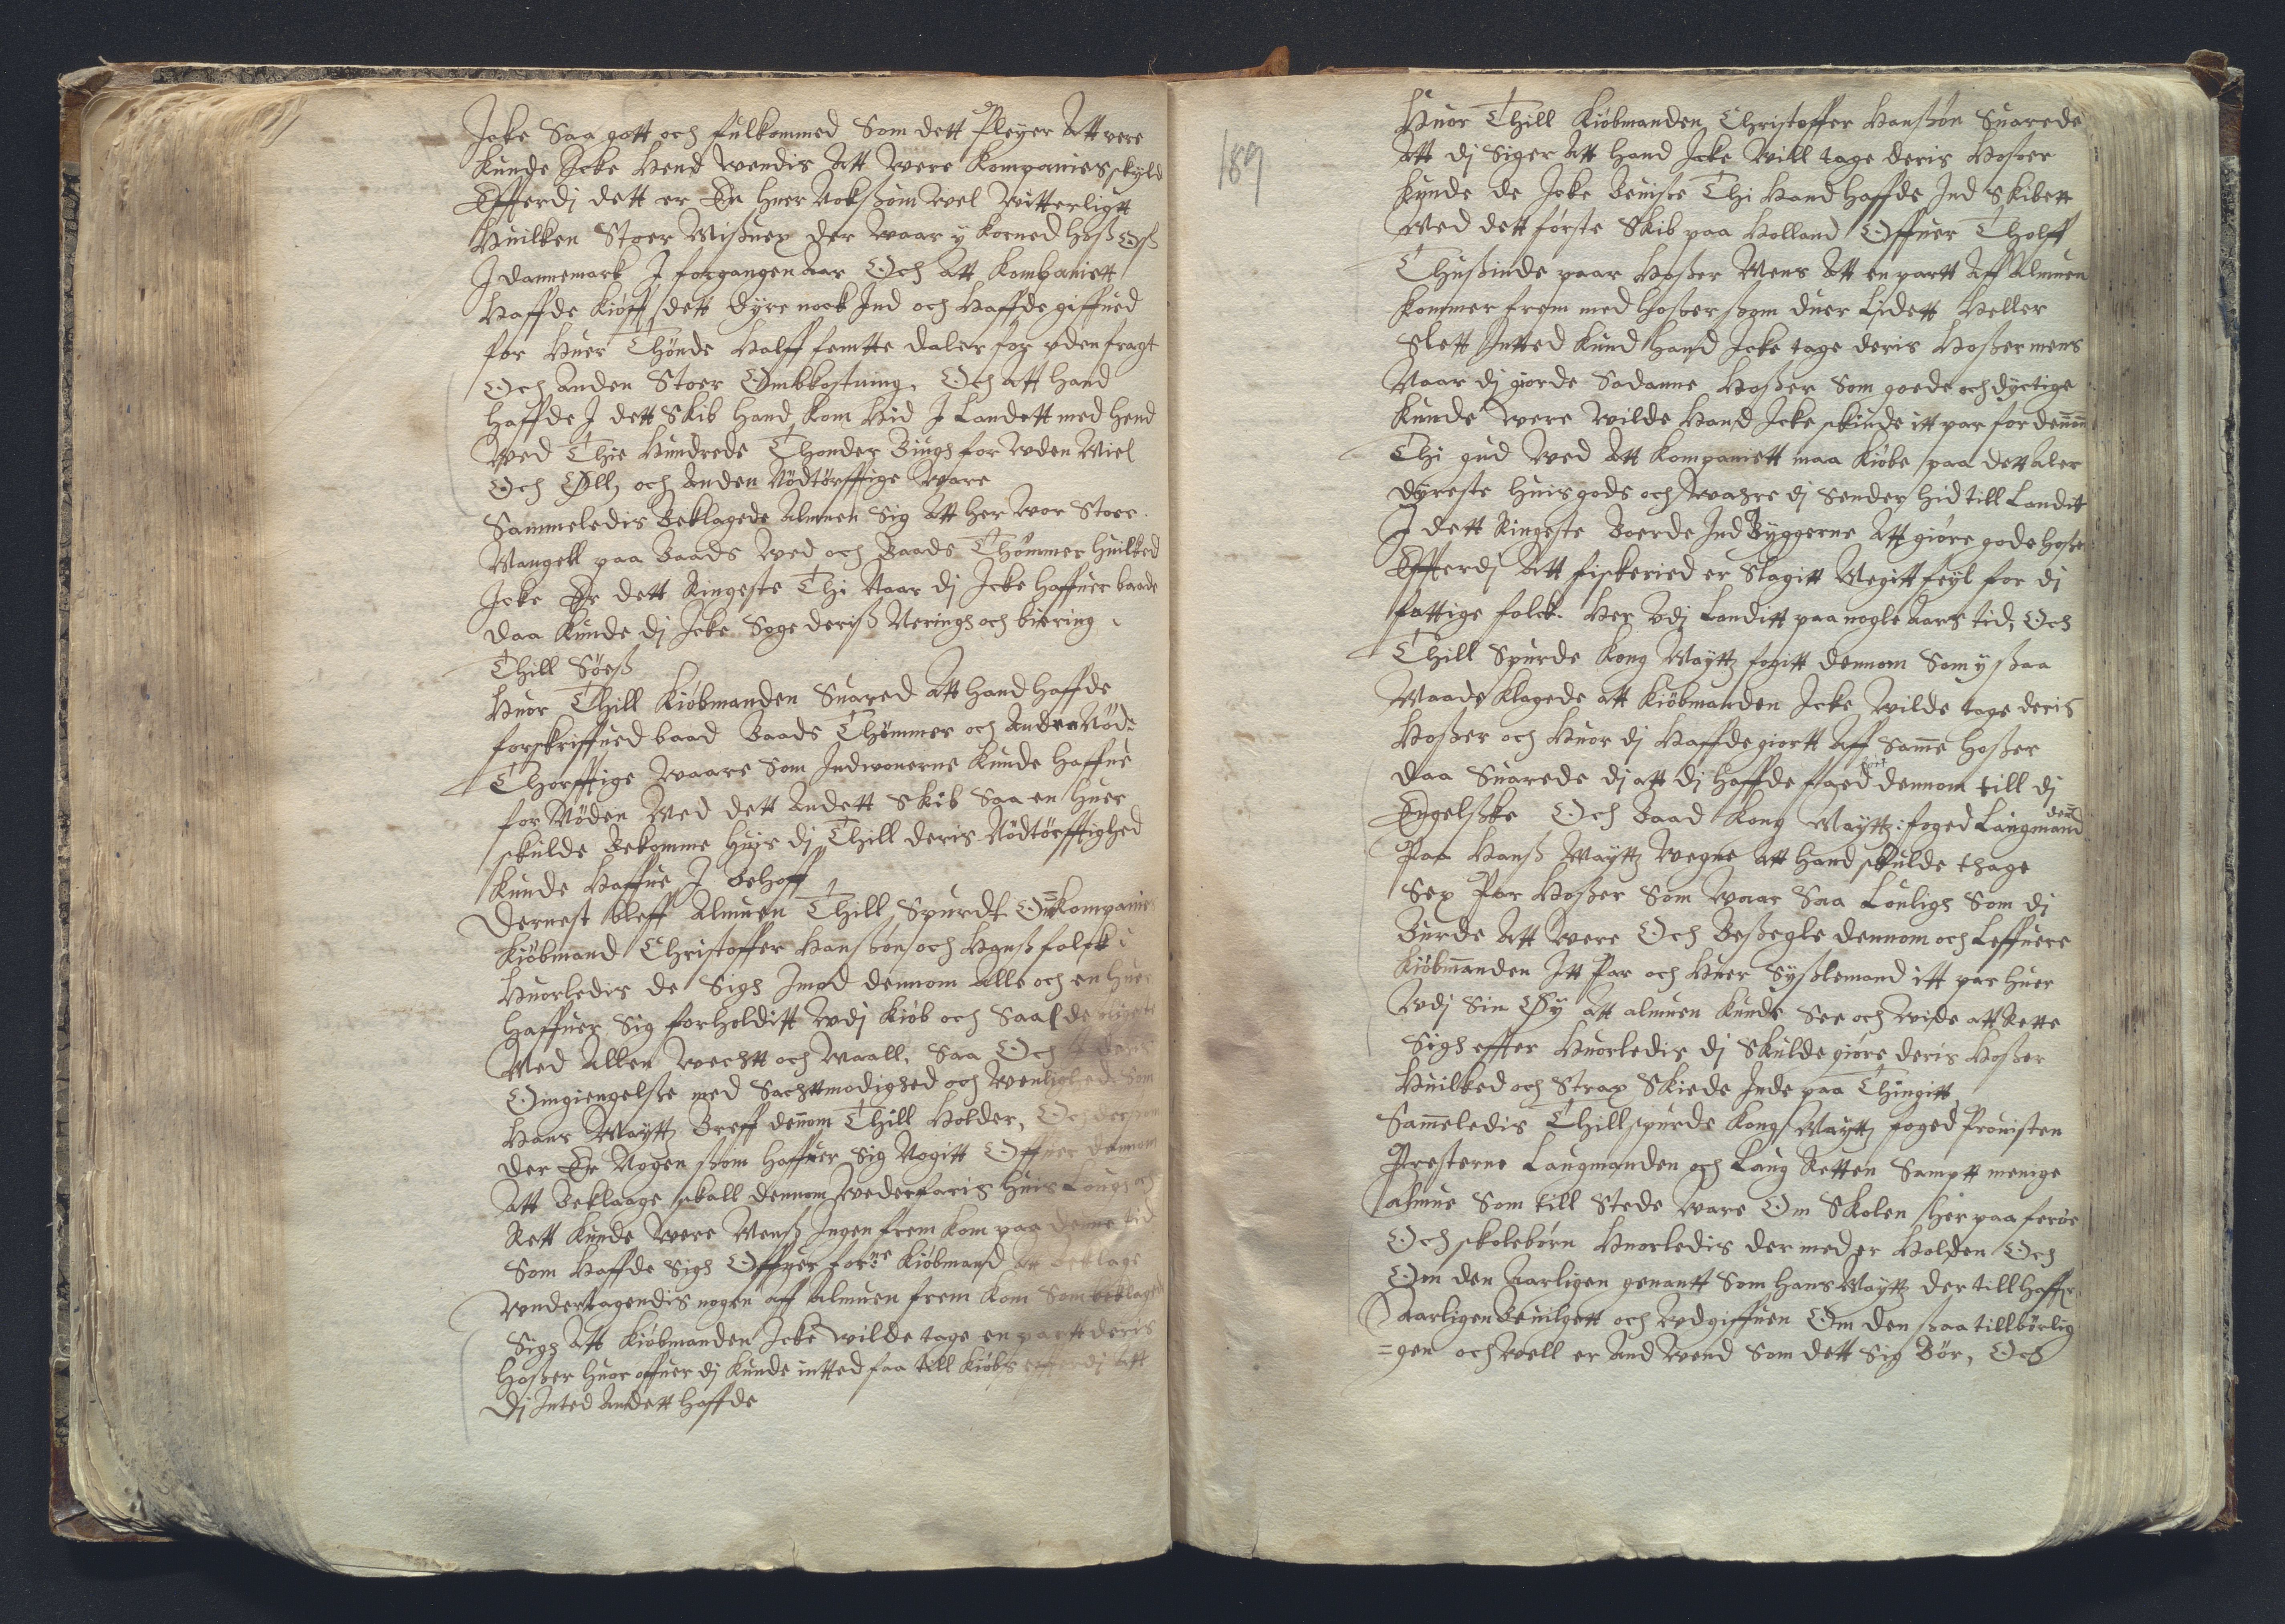 Icke Saa gott och fulkommed Som dett Pleyer Att vere
Kunde Icke Hend wendis Att Were Kompanies skyld
Effterdj dett er En huer Nokßom Wel Witterligtt
Huilken Stoer Mißuex der waar y Korned hoß Oß
I dannemark I forgangen Aar Och Att Kompaniett
Haffde Kiöfft dett dyre nock Ind och Haffde giffued
for Huer Thönde Halff femtte daler for vden fragt
Och Anden Stoer Ombkostning, Och Att Hand
haffde I dett Skib Hand kom Hid I Landett med Hend
Wed Thie Hundrede Thonder Biugh for wden Miel
Och Öll, och Anden Nödtörfftige Ware
Sammeledis Beklagede Almuen Sig Att her wor Stoer
Mangell paa Baads wed och Baads Thömmer Huilked
Icke Er dett Ringeste Thi Naar dj Icke haffuer baade
daa Kunde dj Icke Søge deriß Neringh och biering
Thill Söeß
Huor Thill Kiöbmanden Suared Att Hand haffde
forskriffued baad Baads Thömmer och Anden Nöd=
Thorfftige waare Som Indwonerne Kunde haffue
for Nöden Med dett Andett Skib Saa en huer
skulde Bekomme huis dj Thill deris Nödtörfftighed
Kunde Haffue I behoff
Dernest bleff Almuen Thill Spurdt Om Kompanies
Kiöbmand Christoffer Hanßön och Hanß folck
Huorledis de Sigh Imod dennom Alle och en huer
Haffuer Sig forholditt wdj Kiöb och Saal
Med Allen wechtt och Maall, Saa Och
Omgiengelße med Sachtmodighed och Wenlighed Som
Hans Maytt Breff dennom Thill Holder, Och dersom
der Er Nogen ßom haffuer Sig Nogitt Offuer dennom
Att Beklaage skall dennom Wederfaris huis Lough och
Rett Kunde Were Menß Ingen frem kom paa denne tid
Som Haffde Sigh Offuer forne Kiöbmand Att beklage
Vndertagendis nogen aff Almuen frem kom Som beklaged
Sigh Att Kiöbmanden Icke wilde tage en partt deris
Hoßer huor offuer dj Kunde intted faa till Kiöbs effterdj Att
Dj Inted Andett haffde
189
Huor Thill Kiöbmanden Christoffer Hanßön Suarede
Att dj Siger Att Hand Icke will tage deris Hoßer
Kunde de Icke Beuiße Thi Hand haffde Ind Skibett
Med dett förste Skib paa Holland Offuer Tholff
Thußinde paar Hoßer Mens Att en partt Aff Almuen
kommer frem med Hoßer ßom duer Lidett Heller
Slett Intted Kund Hand Icke tage deris Hoßer mens
Naar dj giorde Sadanne Hoßer Som goede och dyctige
Kunde were wilde Hand Icke skiude itt par for dennom
Thi gud wed Att Kompaniett maa Kiöbe paa dett Aler
dyreste huis gods och waare dj Sender hid till Landit
I dett Ringeste Boerde Ind Byggerne Att giöre gode Hoßer
Effterdj Att fiskeried er Slagitt Megitt feyl for dj
fattige folck. Her vdj Landitt paa nogle Aars tid, Och
Thill Spurde Kong Maytt fogitt dennom Som y ßaa
Maade Klagede att Kiöbmanden Icke wilde tage deris
Hoßer och Huor dj Haffde giortt Aff Samme Hoßer
daa Suarede dj att dj haffde faaed dennom bort till dj
Engelßke Och Baad Kong Maytt: foged Laugmand denn
Paa Hanß Maytt Wegne Att Hand skulde thage
Sex Par Hoßer Som waar Saa Louligh Som dj
Burde Att were Och Beßegle dennom och Leffuere
Kiöbmanden Itt Par och Huer Syßlemand itt par huer
Wdj Sin Öy att almuen Kunde See och wide att Rette
Sigh effter Huorledis dj Skulde giöre deris Hoßer
Huilked och Strax Skiede Inde paa Thingitt
Sammeledis Thillspurde Kong Maytt foged Prouisten
Presterne Laugmanden och Laug Retten Samptt menige
almue Som till Stede ware Om Skolen her paa feröe
Och skolebörn Huorledis der med er Holden Och
Om den Aarligen genantt Som Hans Maytt der till haffr
Aarligen Beuilgett och wdgiffuen Om den ßaa tillbörlig
=gen och well er And wend Som dett Sig Bör, Och